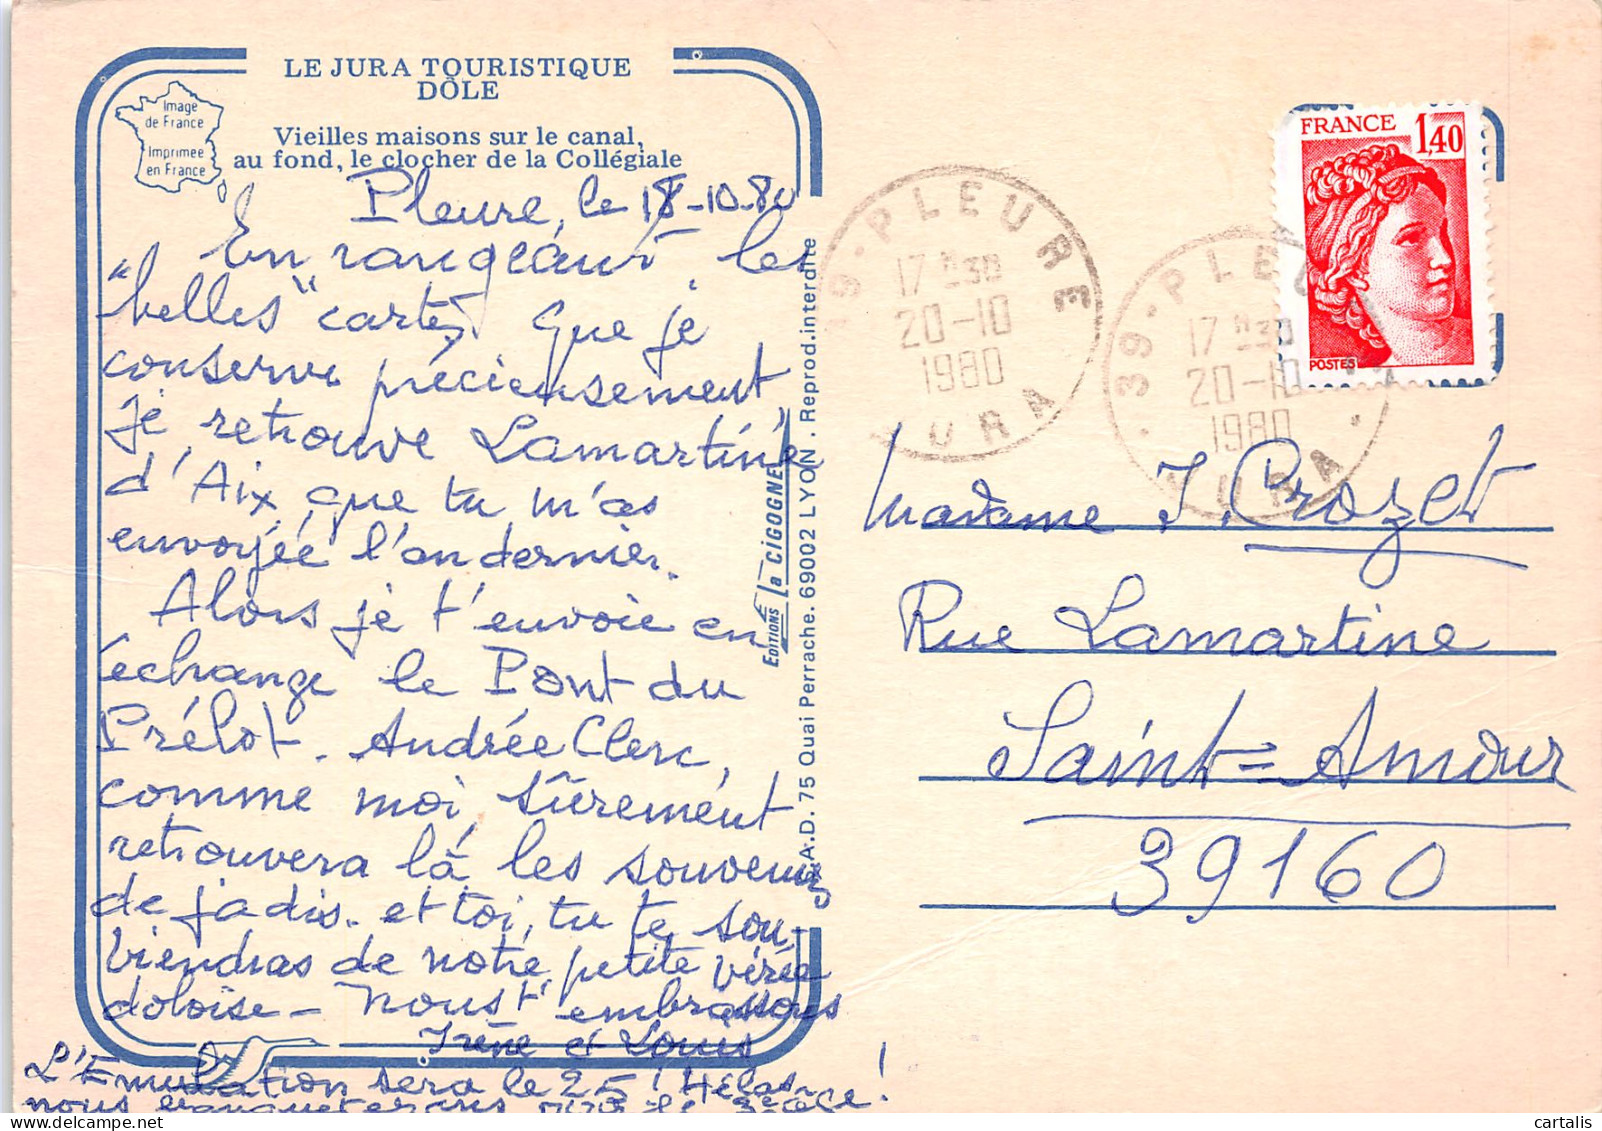 LE JURA TOURISTIQUE
DÔLE
Image
de France
Imprimée
en France
Vieilles maisons sur le canal,
au fond, le clocher de la Collégiale
Pleure, le 18-10-80
En rangeant les
"belles" cartes que je
conserve précieusement
je retrouve Lamartine
d'Aix que tu m'as
envoyée l'an dernier.
Alors je t'envoie en
échange le Pont du
Prélot. Andrée Clerc,
comme moi, sûrement
retrouvera là les souvenirs
de jadis. et toi, tu te sou-
viendras de notre petite virée
doloise - Nous t'embrassons
Irène et Louis
L'Emulation sera le 25! Hélas
nous
EDITIONS la CIGOGNE
S.A.D. 75 Quai Perrache. 69002 LYON. Reprod. interdite
39 - PLEURE
17 H 30
20-10
1980
JURA
39 - PLEURE
17 H 30
20-10
1980
JURA
FRANCE 1,40
POSTES
Madame J. Crozet
Rue Lamartine
Saint=Amour
39160
cartalis